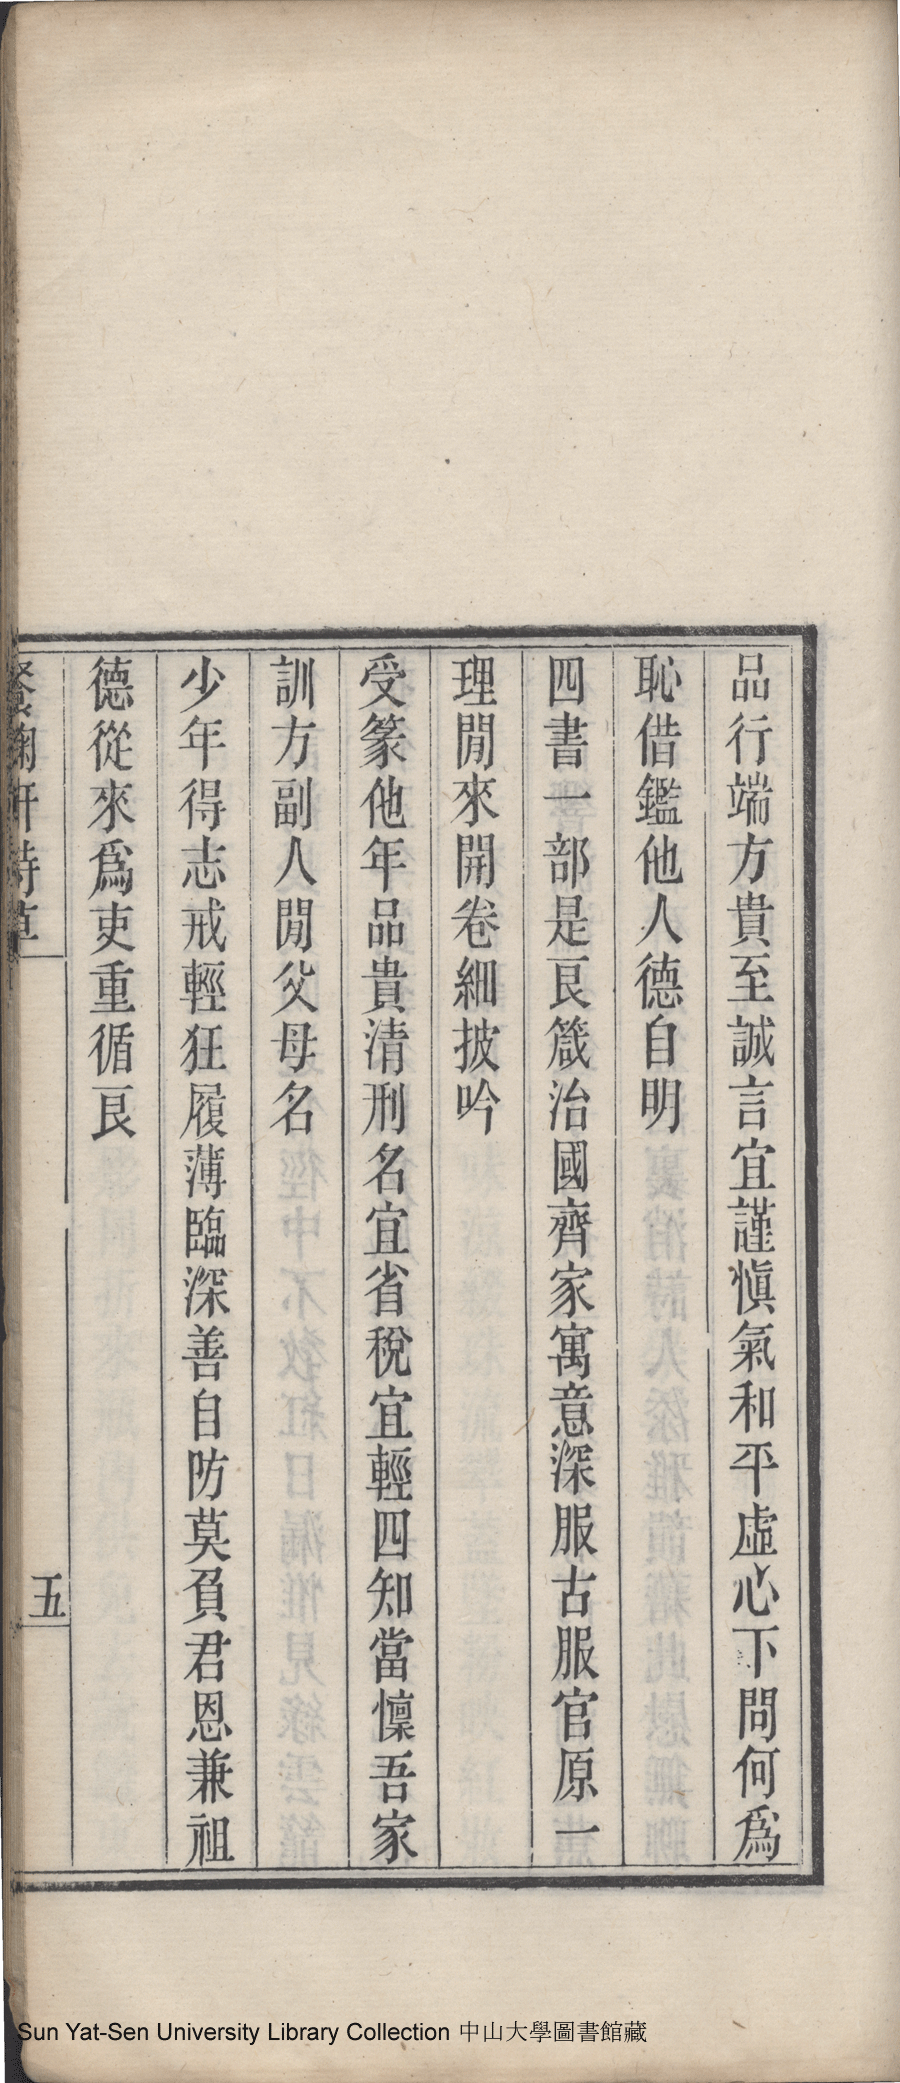 品行端方貴至誠言宜謹愼氣和平虛心下問何爲
恥借鑑他人德自明
四書一部是良箴治國齊家寓意深服古服官原一
理閒來開卷細披吟
受篆他年品貴清刑名宜省稅宜輕四知當懍吾家
訓方副人閒父母名
少年得志戒輕狂履薄臨深善自防莫負君恩兼祖
德從來爲吏重循良
軒詩草
五
Sun Yat-Sen University Library Collection 中山大學圖書館藏